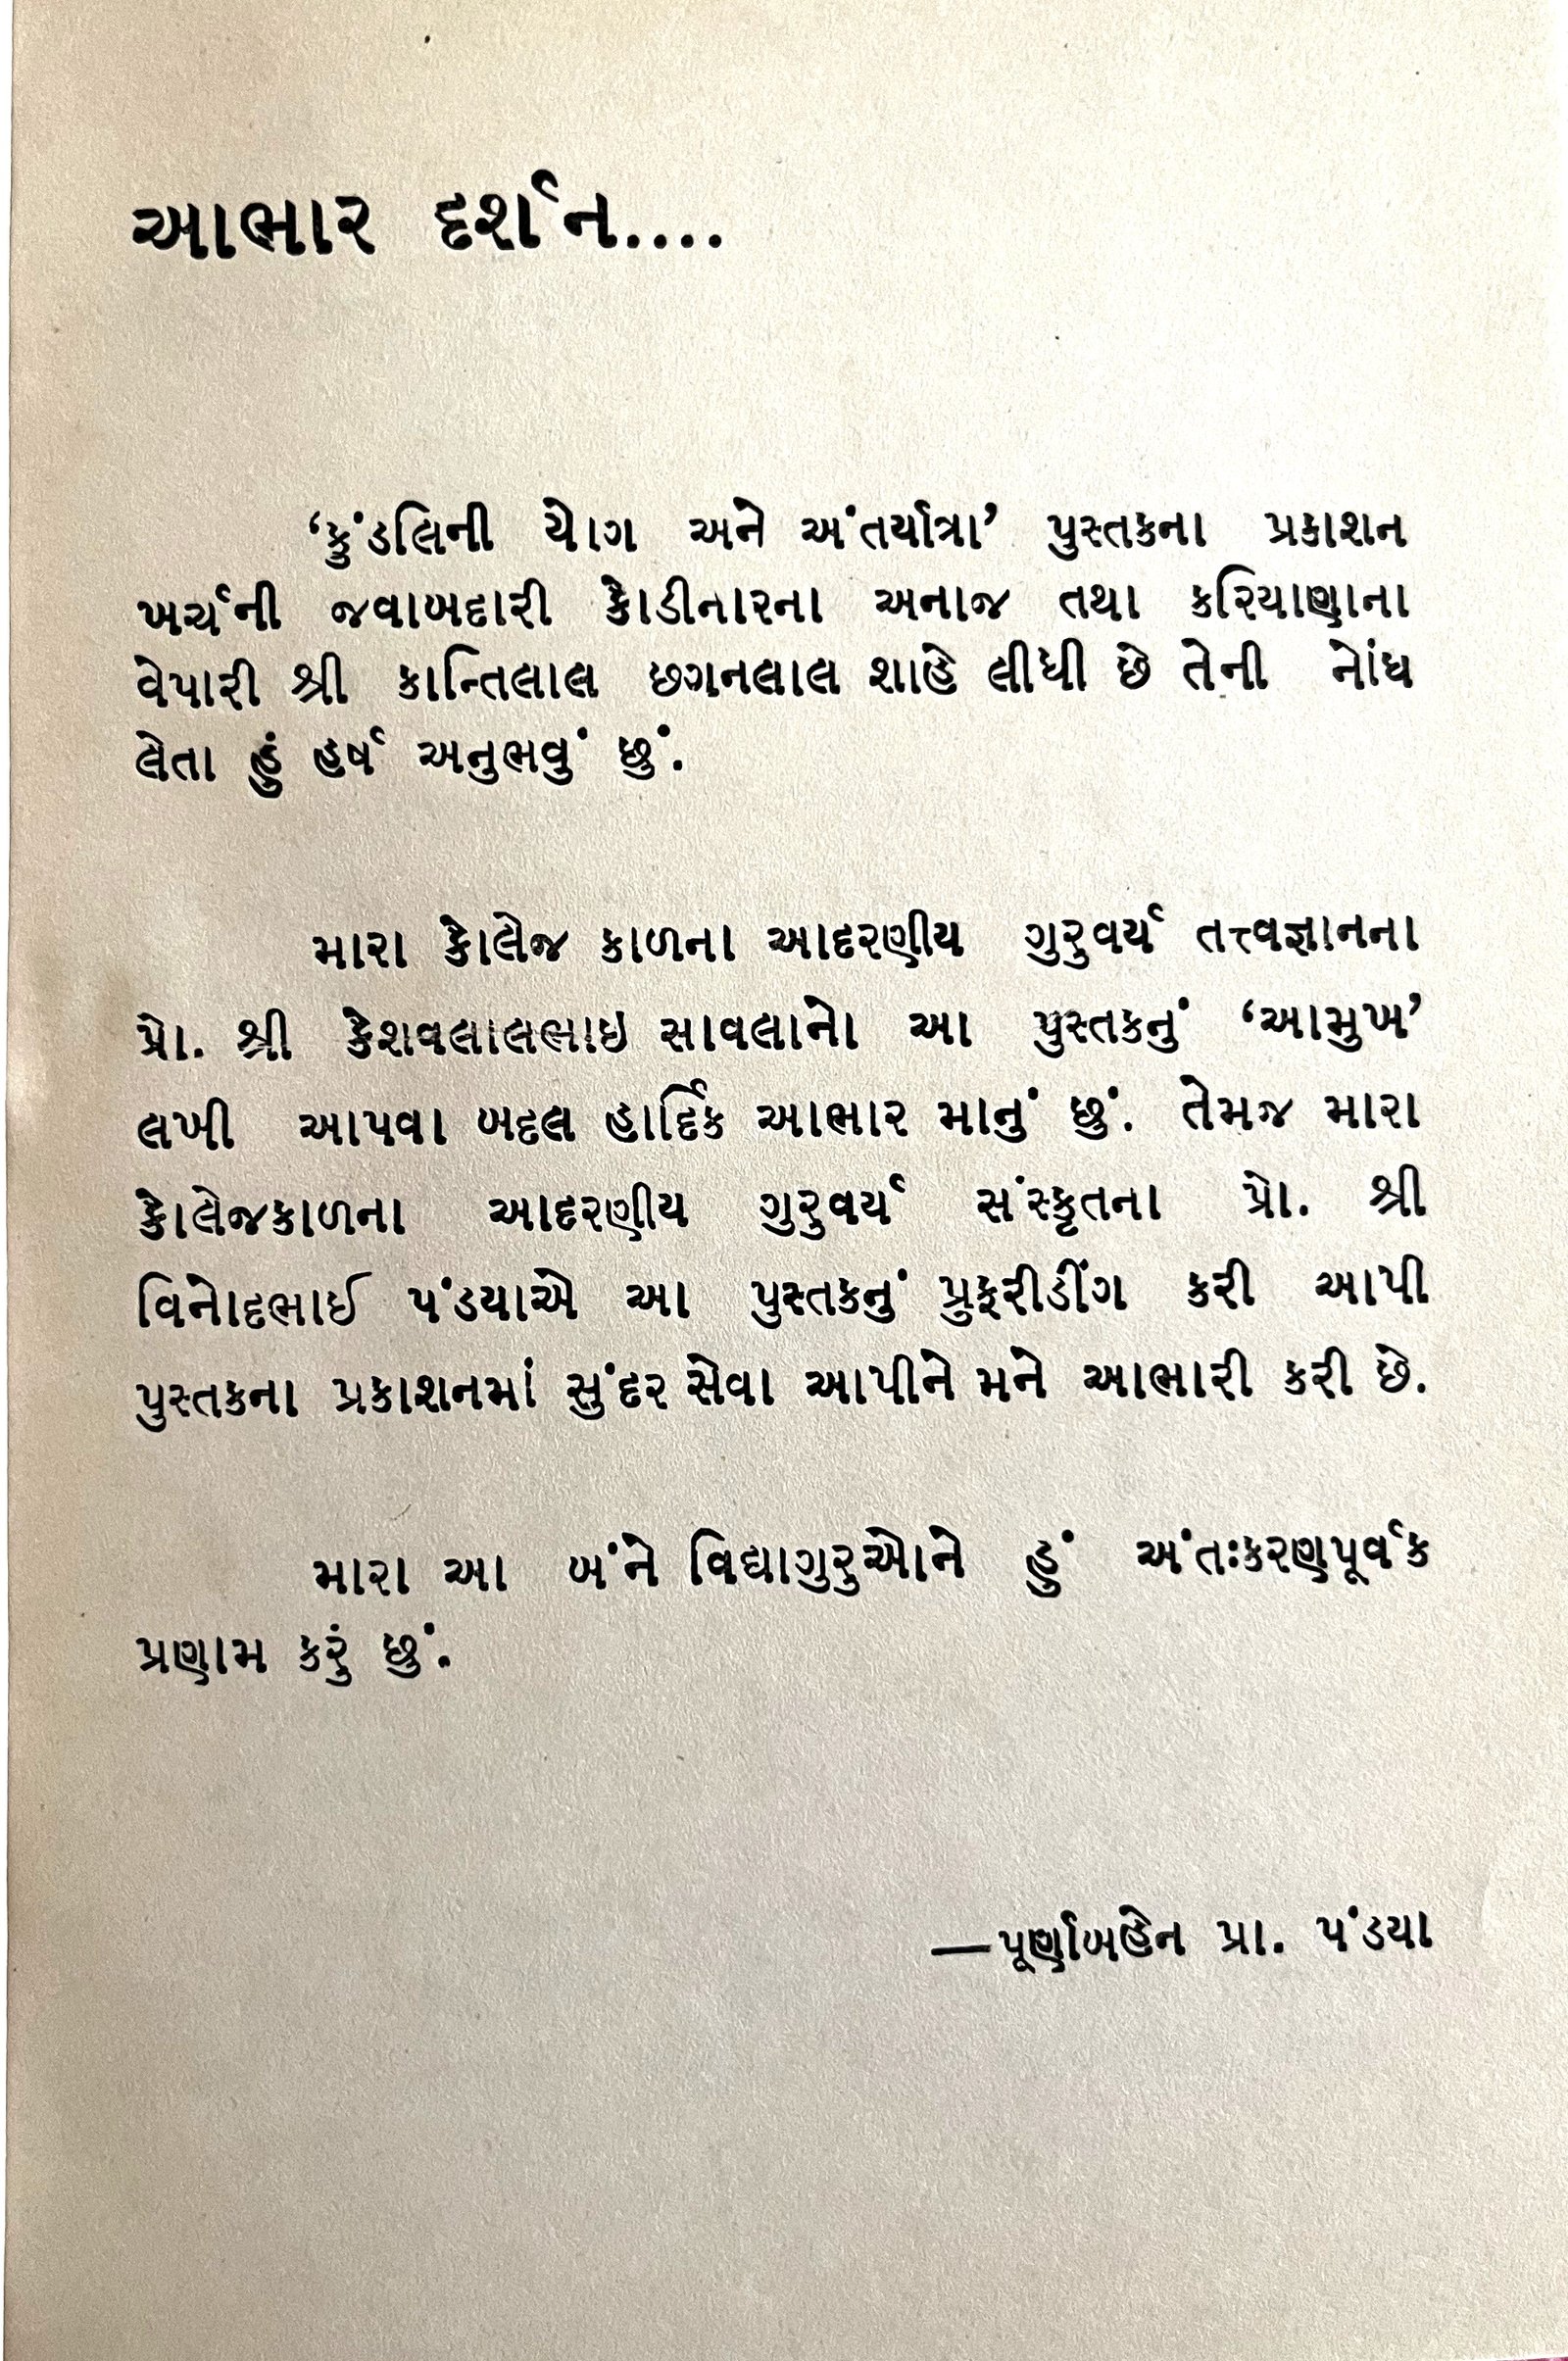 આભાર દર્શન....
‘કુંડલિની યોગ અને અંતર્યાત્રા’ પુસ્તકના પ્રકાશન
ખર્ચની જવાબદારી કોડીનારના અનાજ તથા કરિયાણાના
વેપારી શ્રી કાન્તિલાલ છગનલાલ શાહે લીધી છે તેની નોંધ
લેતા હું હર્ષ અનુભવું છું.
મારા કોલેજ કાળના આદરણીય ગુરુવર્ય તત્ત્વજ્ઞાનના
પ્રો. શ્રી કેશવલાલભાઇ સાવલાનો આ પુસ્તકનું ‘આમુખ’
લખી આપવા બદલ હાર્દિક આભાર માનું છું. તેમજ મારા
કોલેજકાળના આદરણીય ગુરુવર્ય સંસ્કૃતના પ્રો. શ્રી
વિનોદભાઈ પંડયાએ આ પુસ્તકનું પ્રુફરીડીંગ કરી આપી
પુસ્તકના પ્રકાશનમાં સુંદર સેવા આપીને મને આભારી કરી છે.
મારા આ બંને વિદ્યાગુરુઓને હું અંતઃકરણપૂર્વક
પ્રણામ કરું છું.
—પૂર્ણાબહેન પ્રા. પંડયા